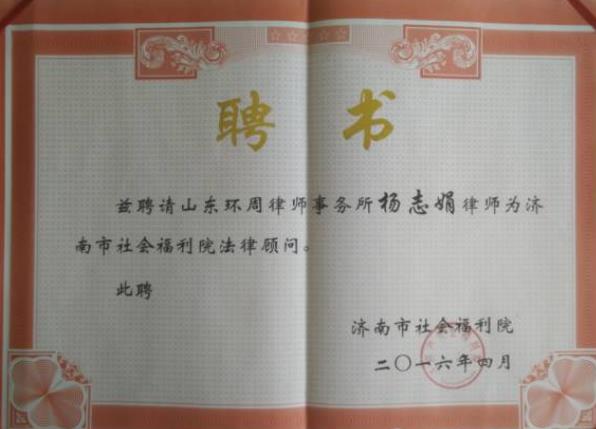 聘书
兹聘请山东环周律师事务所杨志娟律师为济
南市社会福利院法律顾问。
此聘
济南市社会福利院
二〇一六年四月